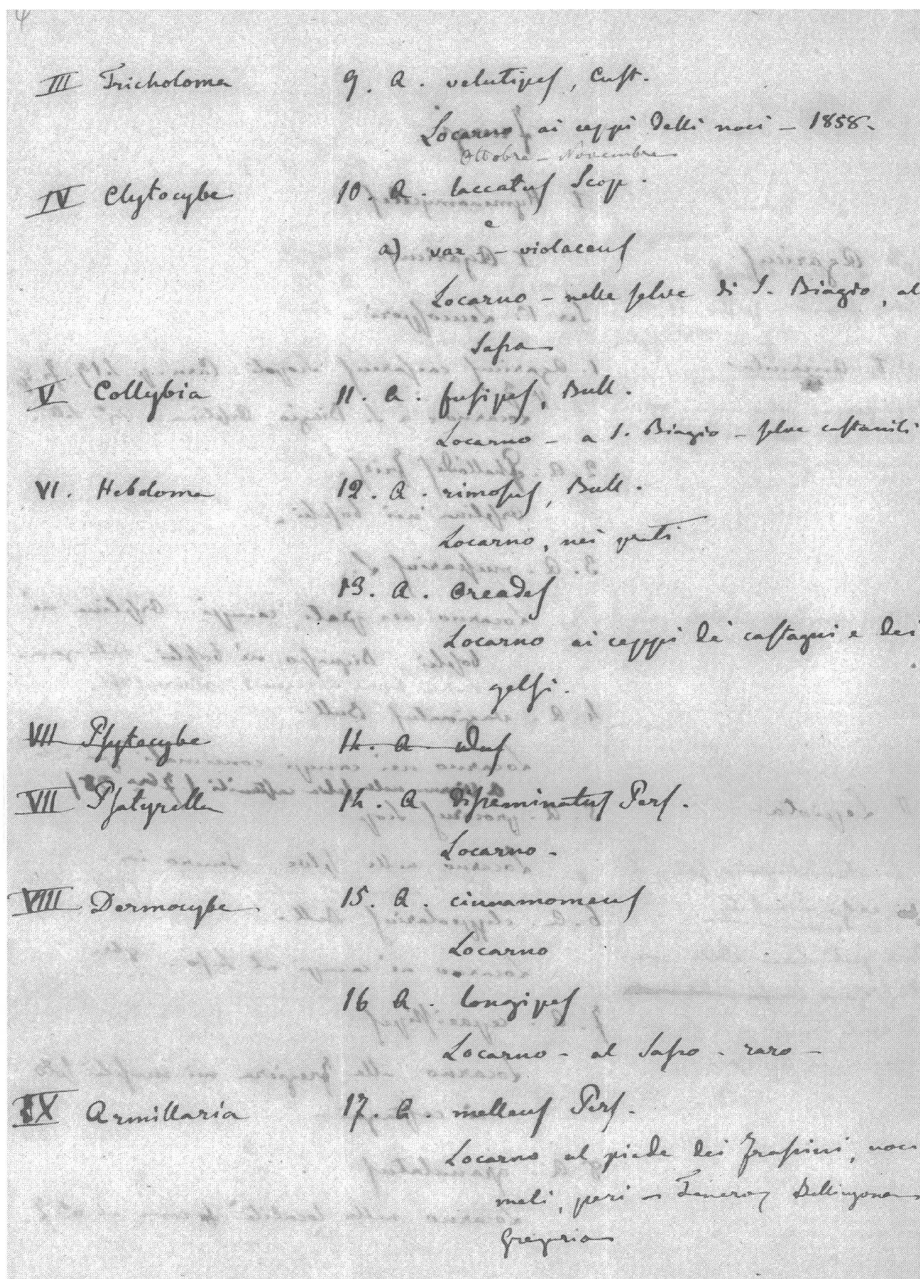 4
III Tricholoma 9. A. velutipes, Cust.
Locarno ai ceppi delli noci – 1858.
Ottobre – Novembre
IV Clytocybe 10. A. laccatus Scop.
a) var. – violaceus
Locarno – nelle selve di S. Biagio, al
Sasso
V Collybia 11. A. fusipes, Bull.
Locarno – a S. Biagio – selve castanili
VI. Hebdoma 12. A. rimosus, Bull.
Locarno, nei prati
13. A. Oreades
Locarno ai ceppi de' castagni e dei
gelsi.
VII Psytocybe 14. A udus
VII Psatyrella 14. A disseminatus Pers.
Locarno.
VIII Dermocybe 15. A. cinnamomeus
Locarno
16 A. longipes
Locarno – al Sasso – raro –
IX Armillaria 17. A. melleus Pers.
Locarno al piede dei frassini, noci
meli, peri – Tenero, Bellinzona